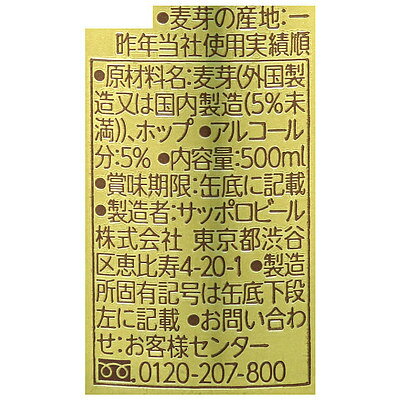 ●麦芽の産地:一
昨年当社使用実績順
●原材料名:麦芽(外国製
造又は国内製造(5%未
満))、ホップ ●アルコール
分:5% ●内容量:500ml
●賞味期限:缶底に記載
●製造者:サッポロビール
株式会社 東京都渋谷
区恵比寿4-20-1 ●製造
所固有記号は缶底下段
左に記載 ●お問い合わ
せ:お客様センター
0120-207-800